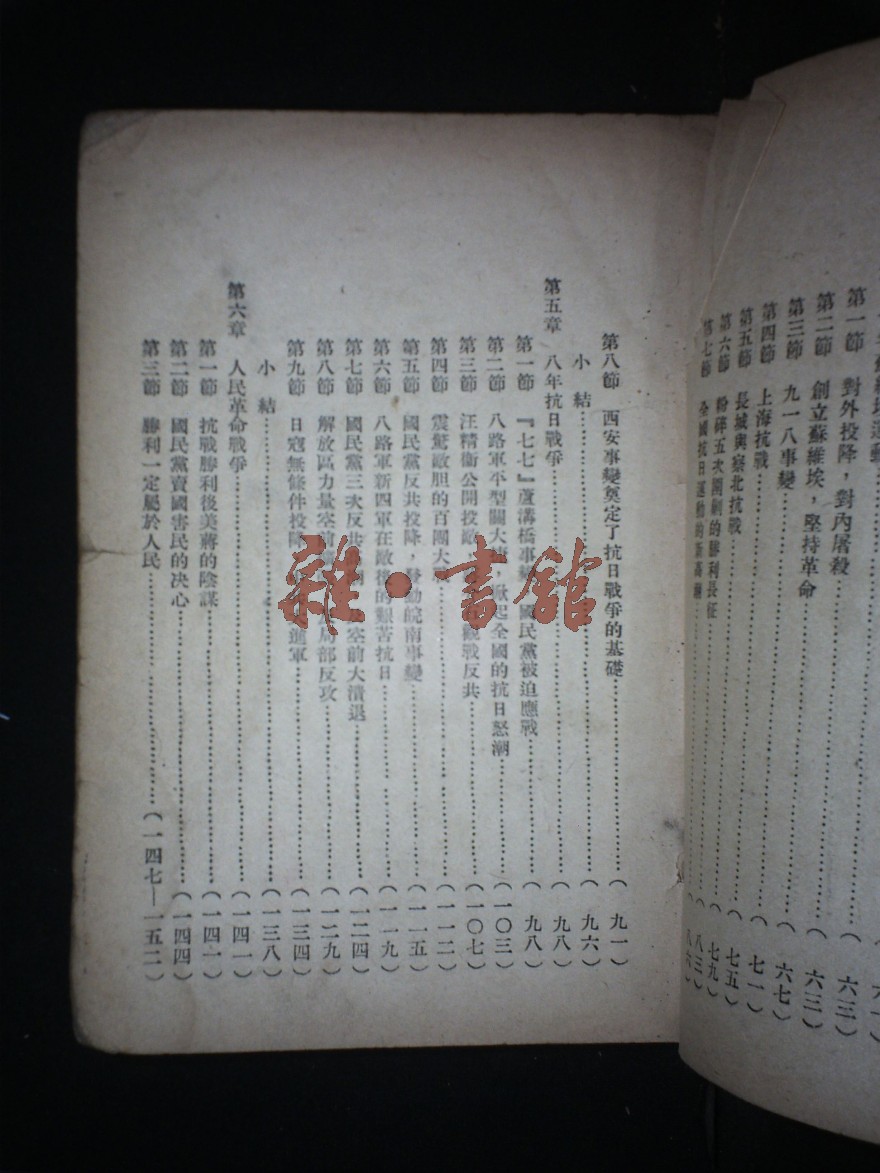 第一節 對外投降，對內屠殺……（六三）
第二節 創立蘇維埃，堅持革命……（六三）
第三節 九一八事變……（六七）
第四節 上海抗戰……（七一）
第五節 長城與察北抗戰……（七五）
第六節 粉碎五次圍剿的勝利長征……（七九）
第七節 全國抗日運動的新高潮……（八三）
第八節 西安事變奠定了抗日戰爭的基礎……（九一）
小結……（九六）
第五章 八年抗日戰爭……（九八）
第一節 『七七』蘆溝橋事 國民黨被迫應戰……（九八）
第二節 八路軍平型關大 ，起全國的抗日怒潮……（一〇三）
第三節 汪精衛公開投敵 觀戰反共……（一〇七）
第四節 震驚敵胆的百團大……（一一二）
第五節 國民黨反共投降， 動皖南事變……（一一五）
第六節 八路軍新四軍在敵後的艱苦抗日……（一一九）
第七節 國民黨三次反共 空前大潰退……（一二四）
第八節 解放區力量空前 局部反攻……（一二九）
第九節 日寇無條件投降 進軍……（一三四）
小結……（一三八）
第六章 人民革命戰爭……（一四一）
第一節 抗戰勝利後美蔣的陰謀……（一四一）
第二節 國民黨賣國害民的决心……（一四四）
第三節 勝利一定屬於人民……（一四七—一五二）
雜·書館